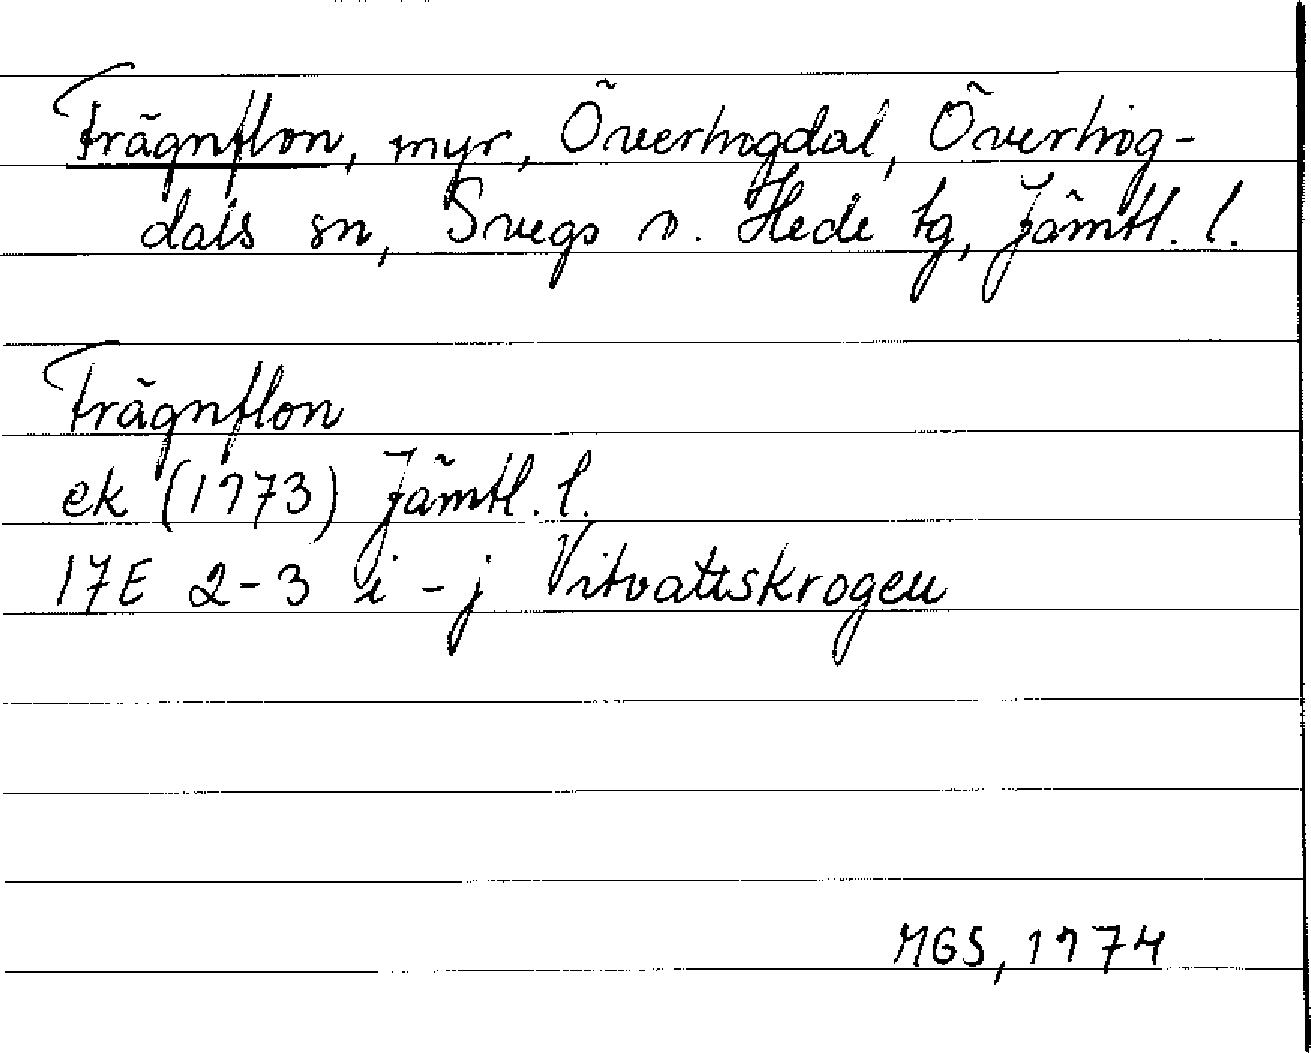 Frägnflon, myr, Överhogdal, Överhog-
dals sn, Svegs o. Hede tg, Jämtl. l.
Frägnflon
ek (1973) Jämtl. l.
17E 2-3 i-j Vitvattskrogen
MGS, 1974